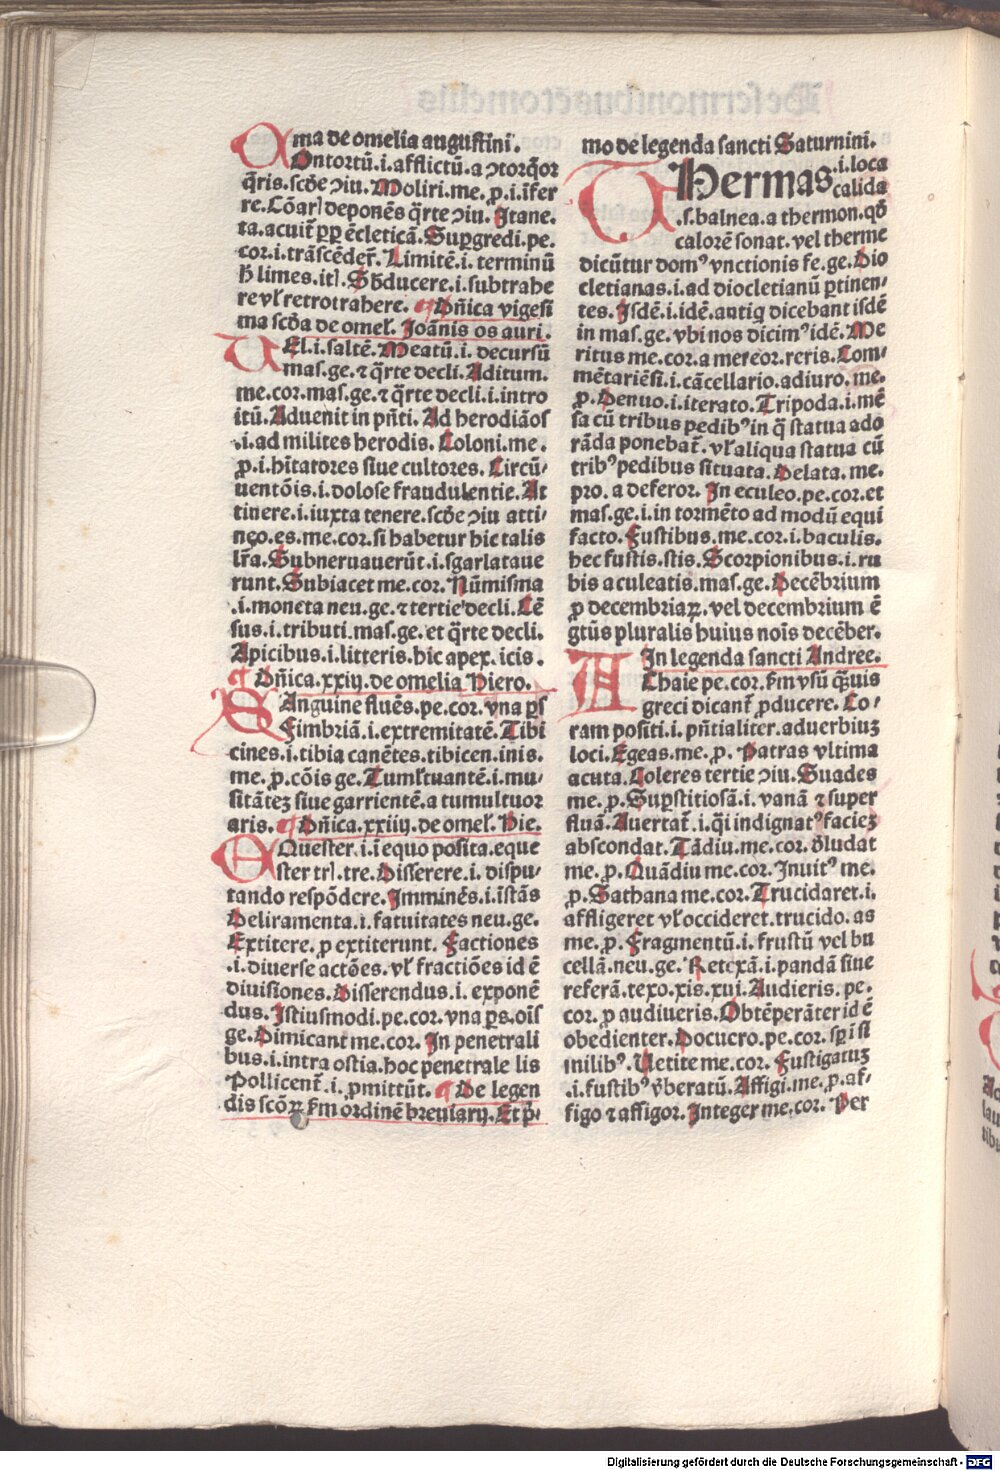 ma de omelia augustini.
COntortū.i.afflictū.a ↄtorq̄or
q̄ris.scd̄e ↄiu. Moliri.me.ꝓ.i.īfer
re. Cōar] deponēs q̄rte ↄiu. Itane.
ta.acuit̄ ꝓꝑ ēcleticā. Suꝑgredi.pe.
cor.i.trāscēder̄. Limitē.i. terminū
h̄ limes.it]. Sbducere.i.subtrahe
re vl̄ retrotrahere. ¶ Dn̄ica vigesi
ma scd̄a de omel̄. Joānis os auri.
UEl.i.saltē. Meatū.i. decursū
mas.ge.⁊ q̄rte decli. Aditum.
me.cor.mas.ge.⁊ q̄rte decli.i.intro
itū. Aduenit in pn̄ti. Ad herodiāos
.i.ad milites herodis. Coloni.me.
ꝓ.i.hītatores siue cultores. Circū/
uentōis.i.dolose fraudulentie. At
tinere.i.iuxta tenere.scd̄e ↄiu atti/
nco.es.me.cor.si habetur hic talis
lr̄a. Subneruauerūt.i.sgarlataue
runt. Subiacet me.cor. Nūmisma
.i.moneta neu.ge.⁊ tertie decli. Cē
sus.i.tributi.mas.ge.et q̄rte decli.
Apicibus.i.litteris.hic apex.icis.
¶ Dn̄ica.xxiij.de omelia Hiero.
SAnguine fluēs.pe.cor.vna ꝑs
Fimbriā.i.extremitatē. Tibi
cines.i.tibia canētes.tibicen.inis.
me.ꝓ.cōis ge. Tumltuantē.i.mu/
sitātez siue garrientē.a tumultuor
aris. ¶ Dn̄ica.xxiiij.de omel̄. Hie.
EQuester.i.ī equo posita.eque
ster tr].tre. Disserere.i. dispu/
tando respōdere. Imminēs.i.īstās
Deliramenta.i.fatuitates neu.ge.
Extitere.ꝓ extiterunt. Factiones
.i.diuerse actōes.vl̄ fractiōes id ē
diuisiones. Disserendus.i. exponē
dus. Istiusmodi.pe.cor.vna ꝑs.oīs
ge. Dimicant me.cor. In penetrali
bus.i.intra ostia.hoc penetrale lis
Pollicent̄.i.ꝓmittūt. ¶ De legen
dis scōꝝ ẜm ordinē breuiarij. Et p̄/
mo de legenda sancti Saturnini.
THermas.i.loca
calida
.s.balnea.a thermon.qd̄
calorē sonat.vel therme
dicūtur domꝰ vnctionis fe.ge. Dio
cletianas.i.ad diocletianū ꝑtinen/
tes. Isdē.i.idē.antiq̄ dicebant isdē
in mas.ge.vbi nos dicimꝰ idē. Me
ritus me.cor.a mereor.reris. Com/
mētariēsi.i.cācellario.adiuro.me.
ꝓ. Denuo.i.iterato. Tripoda.i.mē
sa cū tribus pedibꝰ in q̄ statua ado
rāda ponebat̄.vl̄ aliqua statua cū
tribꝰ pedibus situata. Delata.me.
pro.a deferor. In eculeo.pe.cor.et
mas.ge.i.in tormēto ad modū equi
facto. Fustibus.me.cor.i.baculis.
hec fustis.stis. Scorpionibus.i.ru
bis aculeatis.mas.ge. Decēbrium
ꝓ decembriaꝝ.vel decembrium ē
gtūs pluralis huius nois decēber.
In legenda sancti Andree.
AChaie pe.cor.ẜm vsū q̄uis
greci dicant̄ ꝓducere. Co/
ram positi.i.pn̄tialiter.aduerbiuz
loci. Egeas.me.ꝓ. Patras vltima
acuta. Coleres tertie ↄiu. Suades
me.ꝓ. Suꝑstitiosā.i.vanā ⁊ super
fluā. Auertat̄.i.q̄i indignatꝰ faciez
abscondat. Tādiu.me.cor.d̄ludat
me.ꝓ. Quādiu me.cor. Inuitꝰ me.
ꝓ. Sathana me.cor. Trucidaret.i.
affligeret vl̄ occideret.trucido.as
me.ꝓ. Fragmentū.i.frustū vel bu
cellā.neu.ge. Retexā.i.pandā siue
referā.texo.xis.xui. Audieris.pe.
cor.ꝓ audiueris. Obtēperāter id ē
obedienter. Docuero.pe.cor.sꝑ i sī
milibꝰ. Uetite me.cor. Fustigatuz
.i.fustibꝰ v̄beratū. Affigi.me.ꝓ.af/
figo ⁊ affigor. Integer me.cor. Per
Digitalisierung gefördert durch die Deutsche Forschungsgemeinschaft - DFG